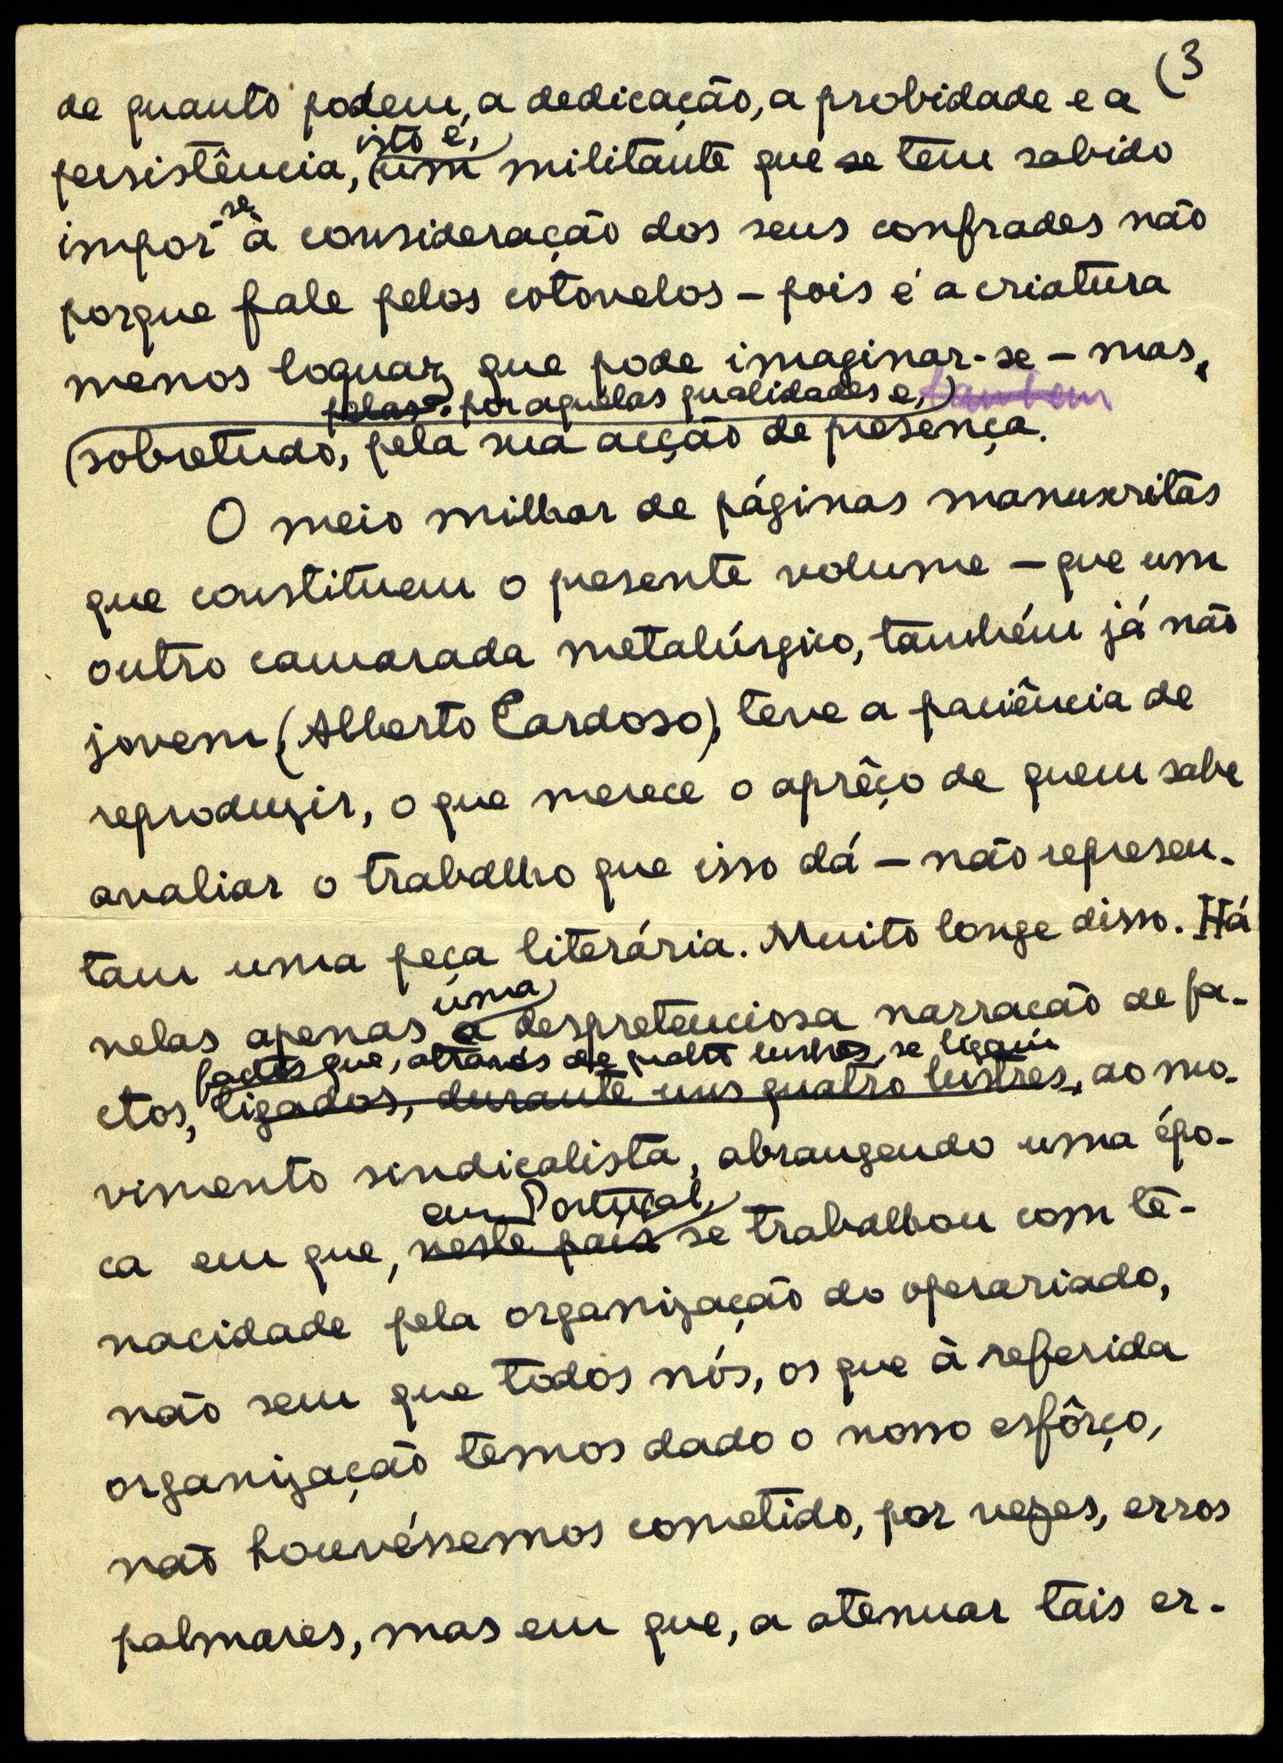 (3
de quanto podem, a dedicação, a probidade e a
isto é,
persistência, um militante que se tem sabido
-se
impor à consideração dos seus confrades não
porque fale pelos cotovelos – pois é a criatura
menos loquaz que pode imaginar-se – mas,
pelas por aquelas qualidades e, também
sobretudo, pela sua acção de presença.
O meio milhar de páginas manuscritas
que constituem o presente volume – que um
outro camarada metalúrgico, também já não
jovem (Alberto Cardoso), teve a paciência de
reproduzir, o que merece o aprêço de quem sabe
avaliar o trabalho que isso dá – não represen-
tam uma peça literária. Muito longe disso. Há
uma
nelas apenas a despretenciosa narração de fa-
factos que, através de quatro lustros, se ligam
ctos, ligados, durante uns quatro lustres, ao mo-
vimento sindicalista, abrangendo uma épo-
em Portugal,
ca em que, neste país se trabalhou com te-
nacidade pela organização do operariado,
não sem que todos nós, os que à referida
organização temos dado o nosso esfôrço,
não houvéssemos cometido, por vezes, erros
palmares, mas em que, a atenuar tais er-